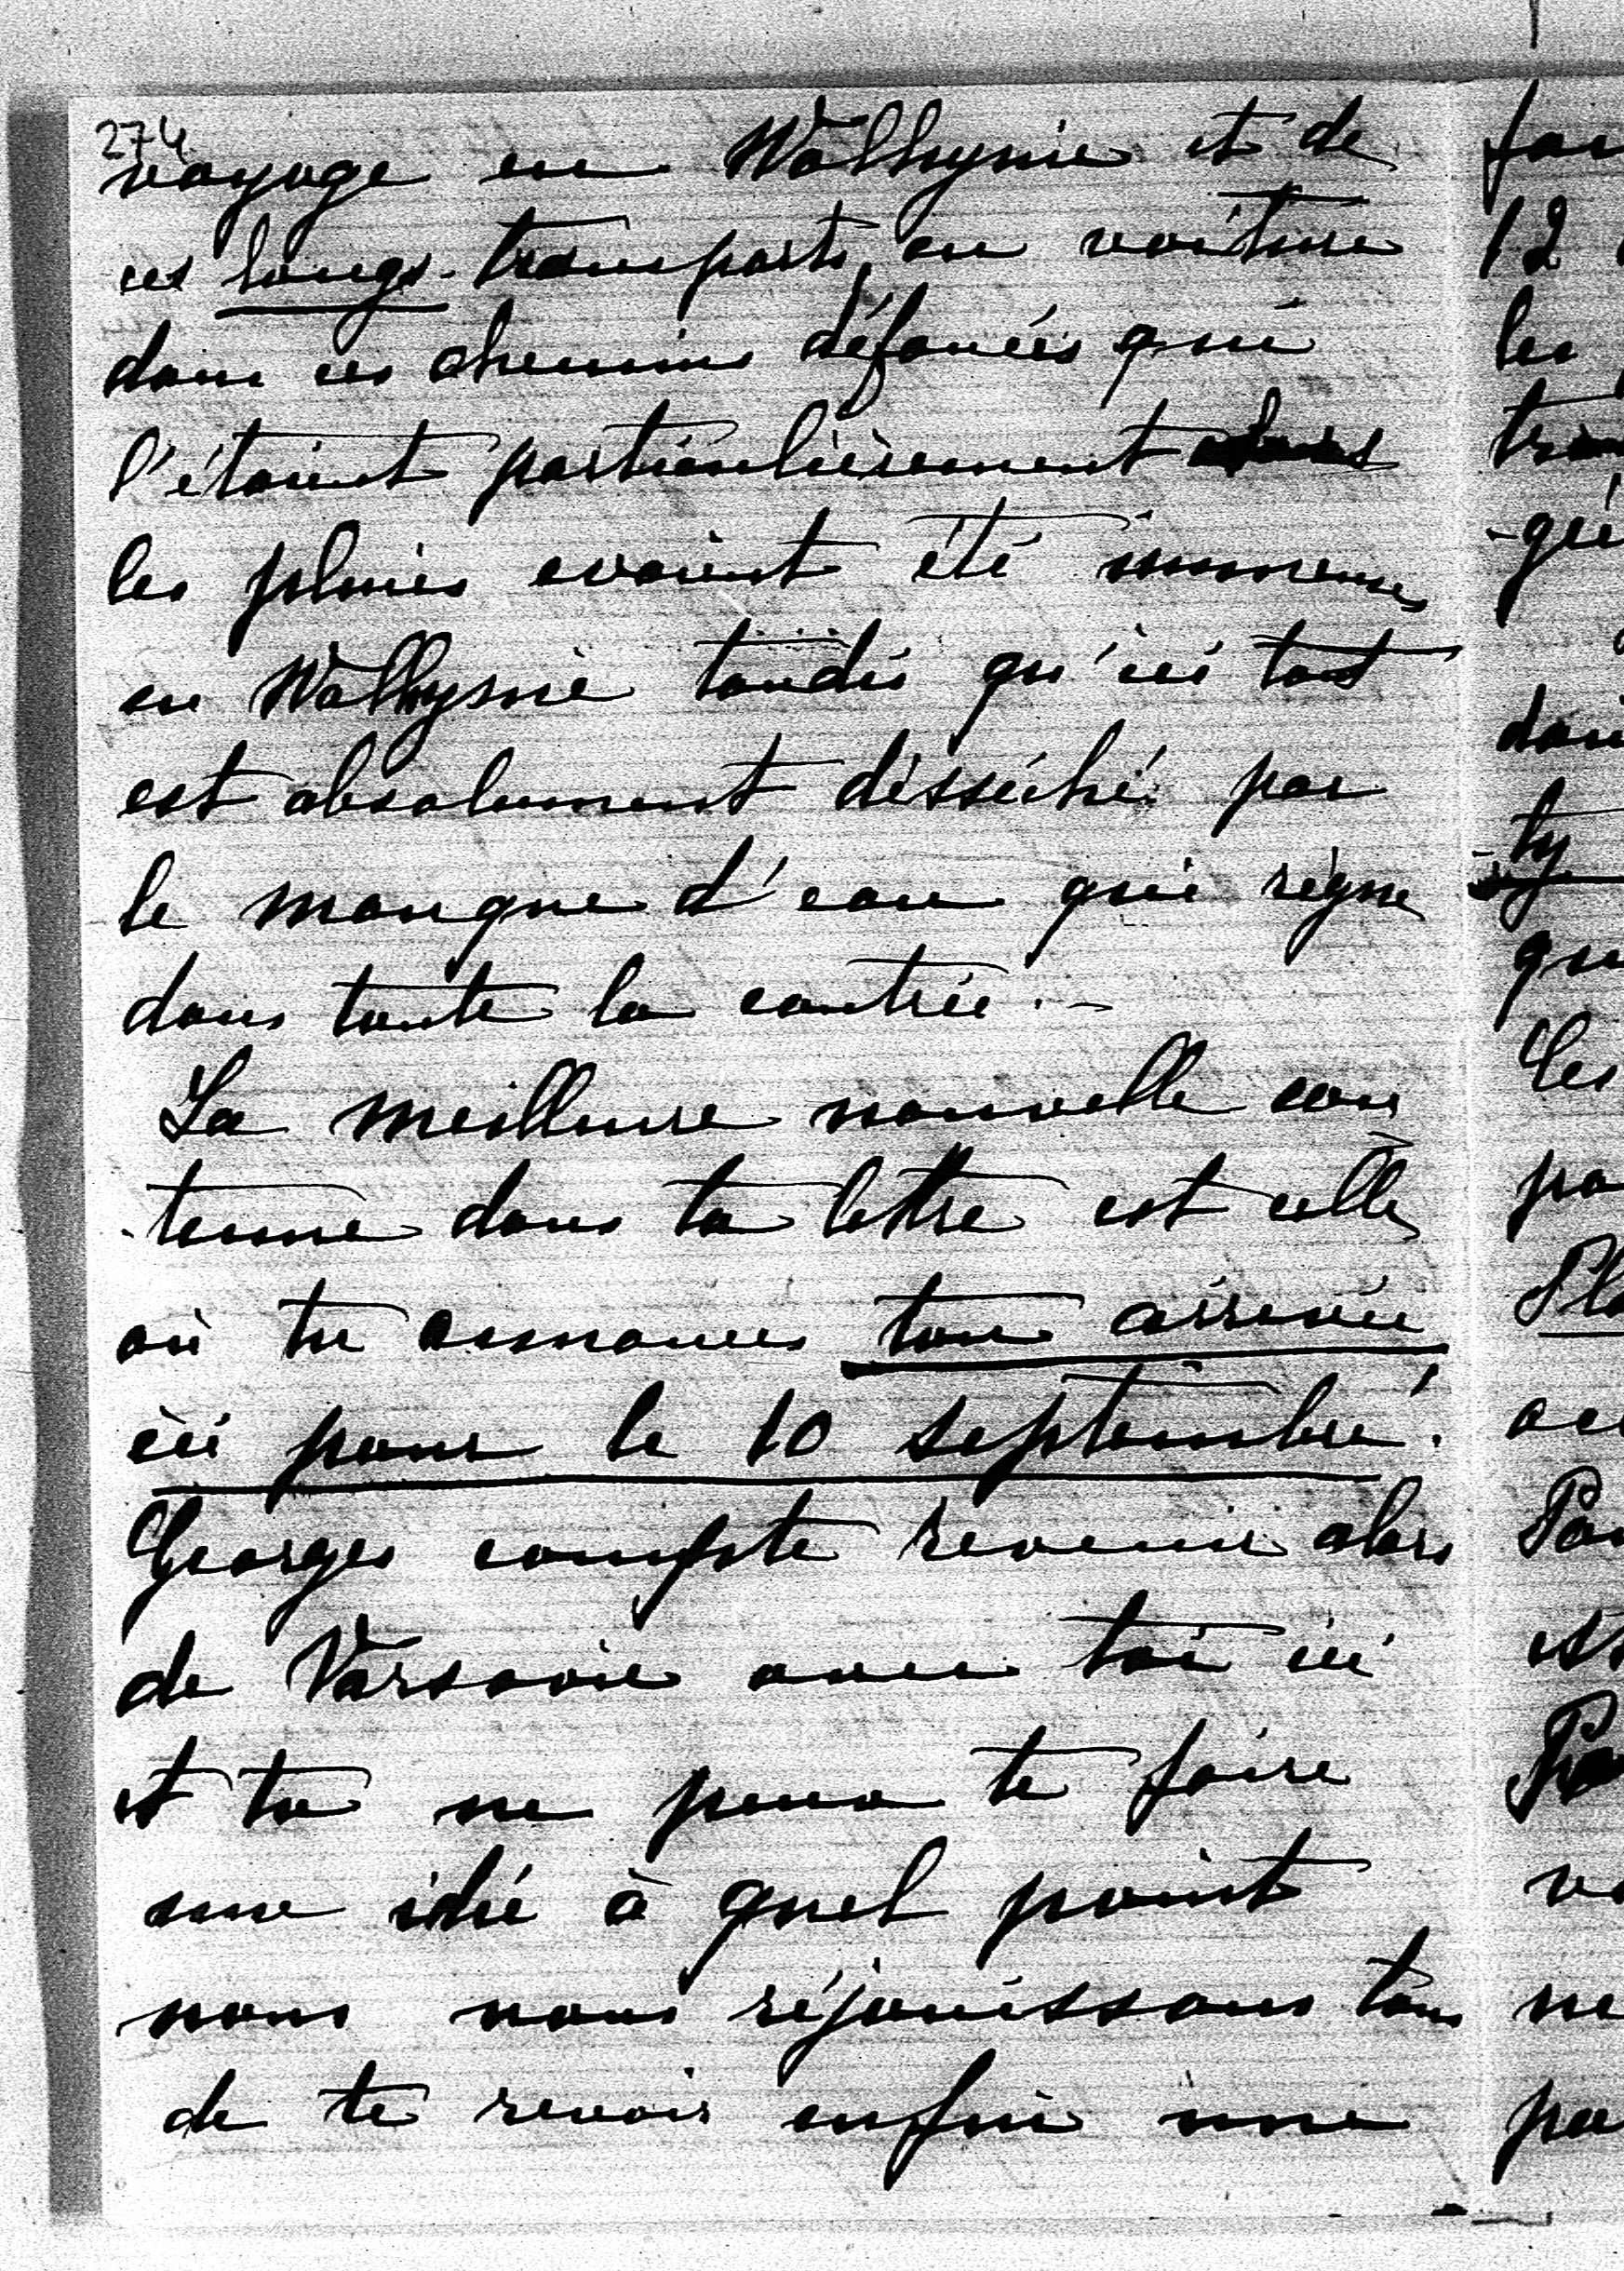 274
voyage en Wolhynie et de
ces longs transports en voiture
dans ces chemins défoncés qui
l'étaient particulièrement alors
les pluies avaient été immenses
en Wolhynie tandis qu'ici tout
est absolument désséché par
le manque d'eau qui règne
dans toute la contrée. –
La meilleure nouvelle con
tenue dans ta lettre est celle
où tu annonces ton arrivée
ici pour le 10 septembre.
Georges compte revenir alors
de Varsovie avec toi ici
et tu ne peux te faire
une idée à quel point
nous nous réjouissons tous
de te revoir enfin une
12
les
-ty